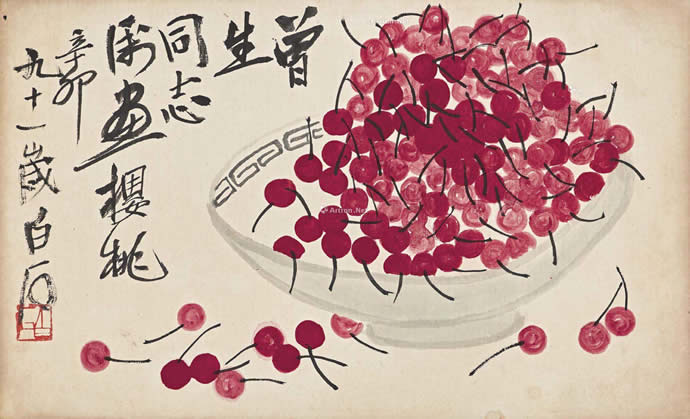 曾生
同志
属画樱桃
辛卯
九十一岁白石
Artron.Net